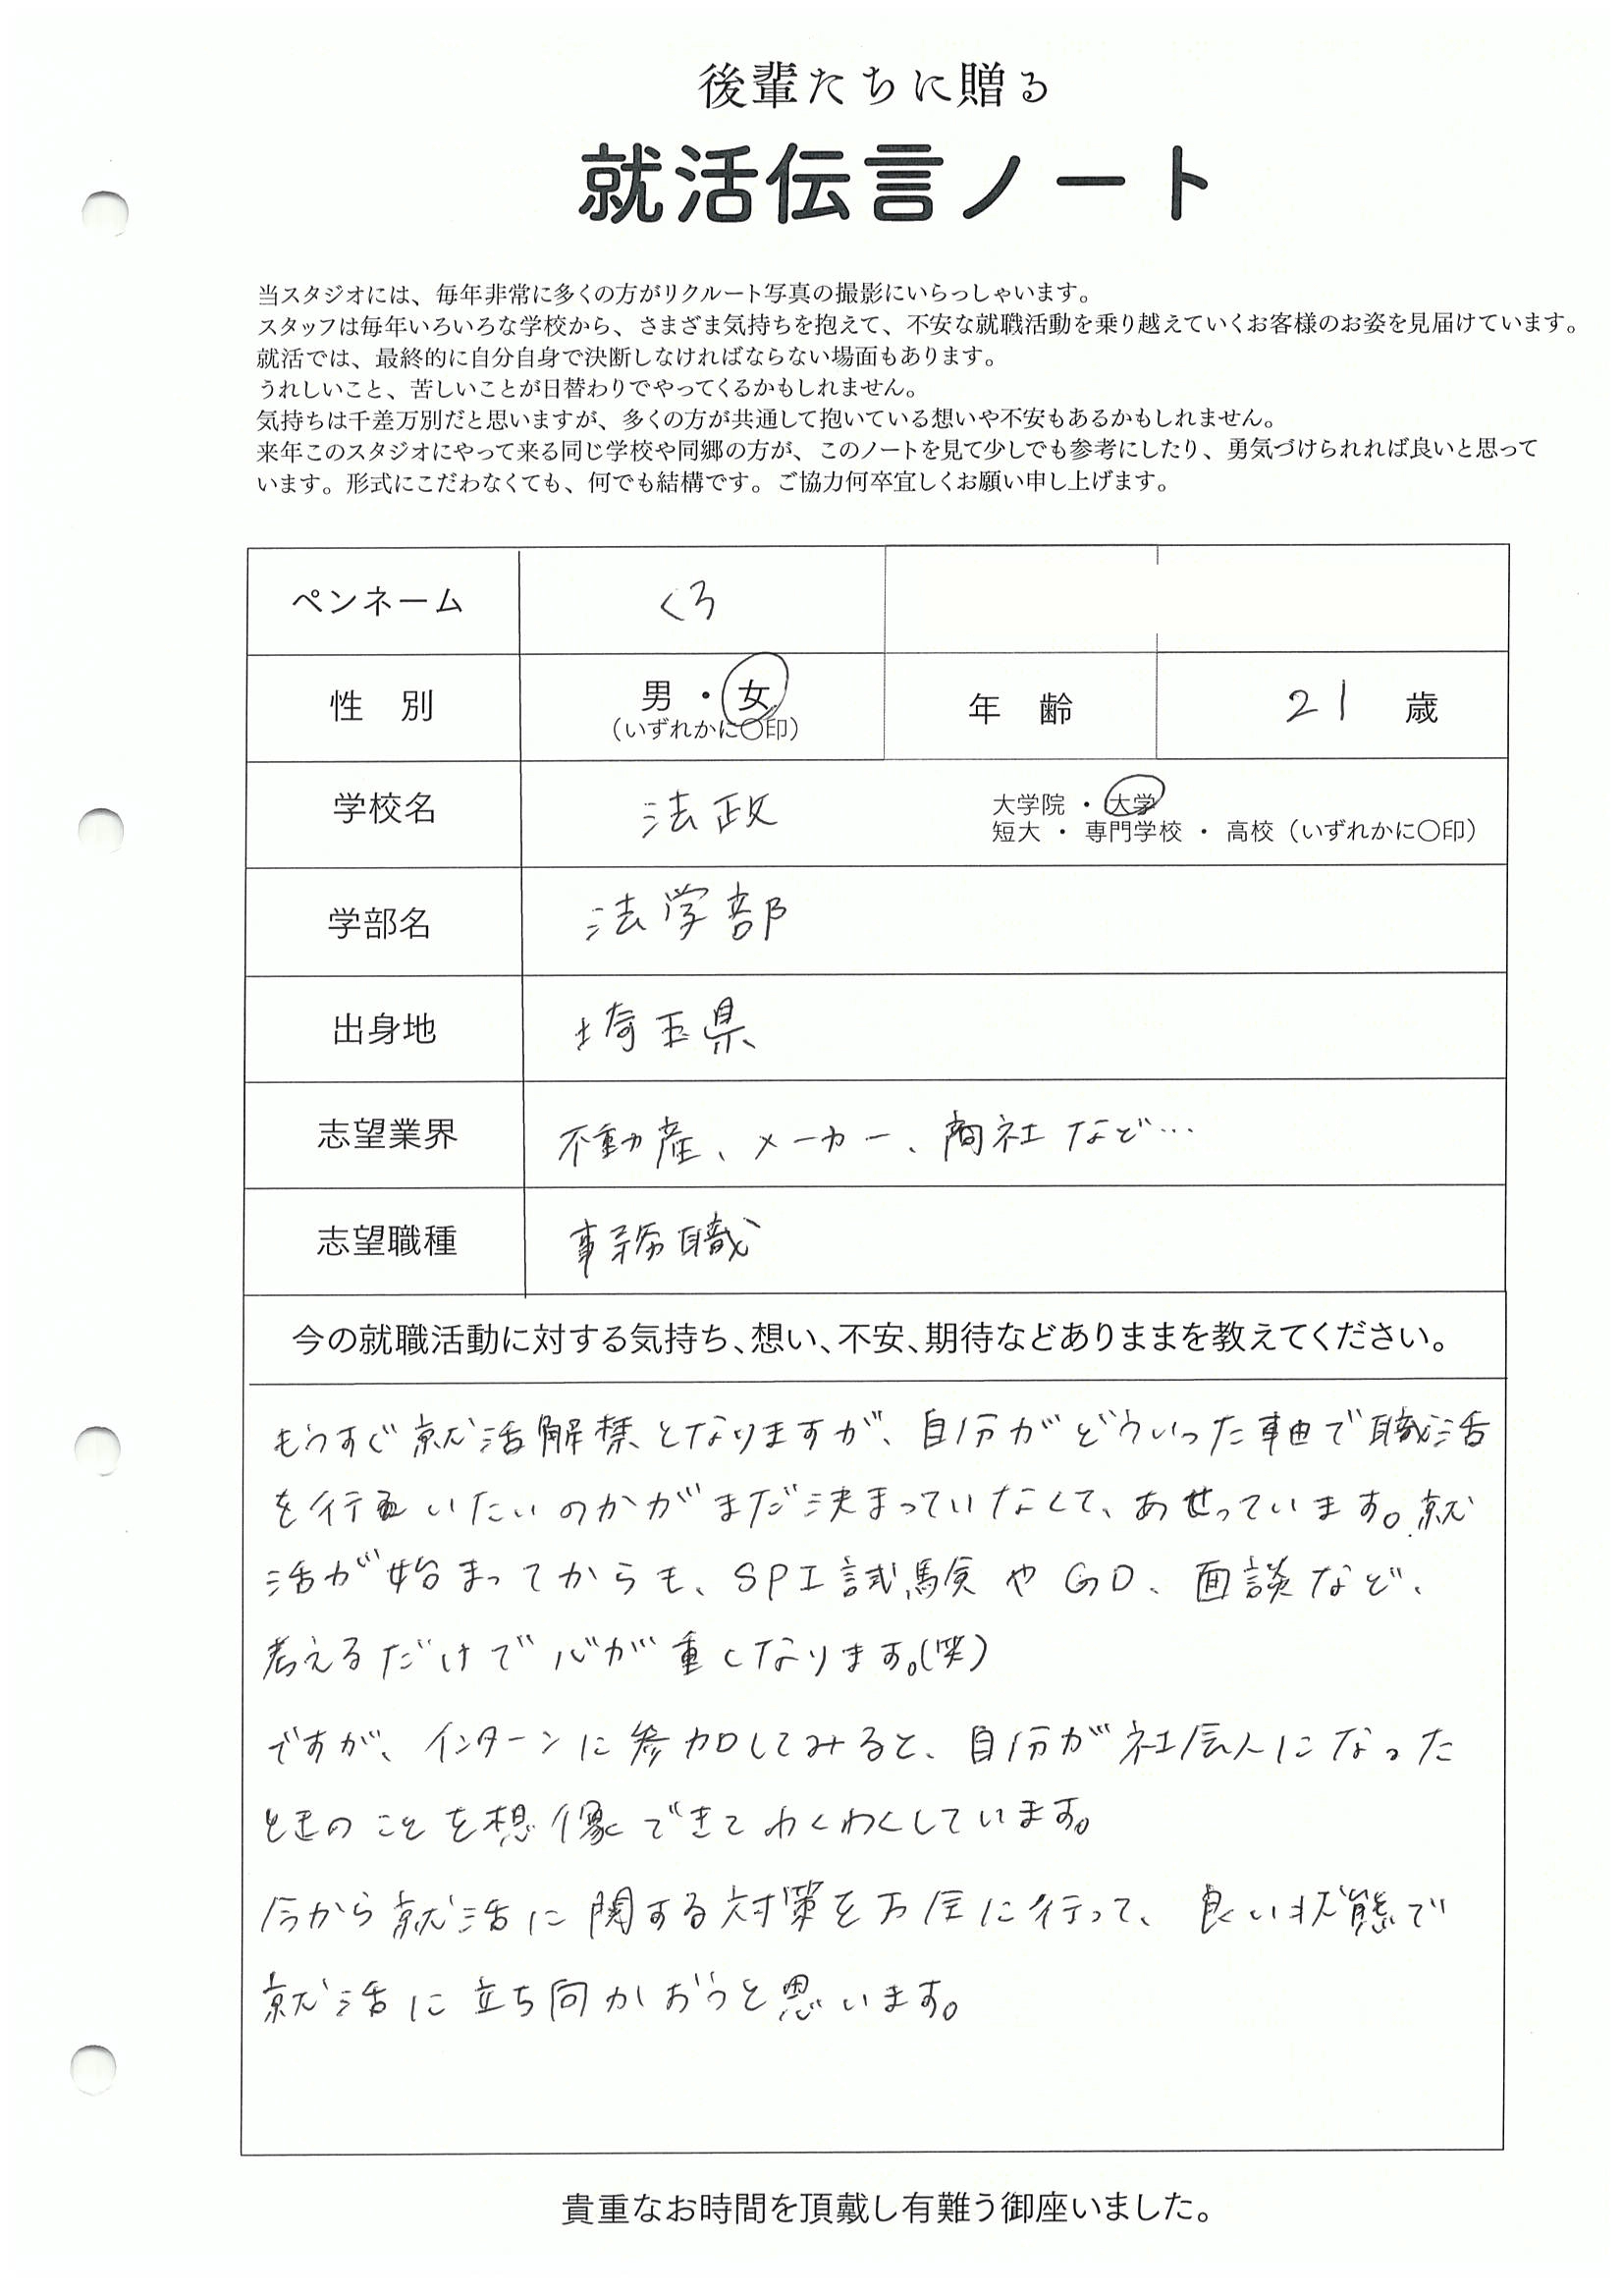 後輩たちに贈る
就活伝言ノート
当スタジオには、毎年非常に多くの方がリクルート写真の撮影にいらっしゃいます。
スタッフは毎年いろいろな学校から、さまざま気持ちを抱えて、不安な就職活動を乗り越えていくお客様のお姿を見届けています。
就活では、最終的に自分自身で決断しなければならない場面もあります。
うれしいこと、苦しいことが日替わりでやってくるかもしれません。
気持ちは千差万別だと思いますが、多くの方が共通して抱いている想いや不安もあるかもしれません。
来年このスタジオにやって来る同じ学校や同郷の方が、このノートを見て少しでも参考にしたり、勇気づけられれば良いと思って
います。形式にこだわなくても、何でも結構です。ご協力何卒宜しくお願い申し上げます。
ペンネーム くろ
性 別 男 ・ 女 年 齢 21 歳
(いずれかに○印)
学校名 法政 大学院 ・ 大学
短大 ・ 専門学校 ・ 高校 (いずれかに○印)
学部名 法学部
出身地 埼玉県
志望業界 不動産、メーカー、商社など…
志望職種 事務職
今の就職活動に対する気持ち、想い、不安、期待などありままを教えてください。
もうすぐ就活解禁となりますが、自分がどういった軸で職活
を行いたいのかがまだ決まっていなくて、あせっています。就
活が始まってからも、SPI試験やGD、面談など、
考えるだけで心が重くなります。(笑)
ですが、インターンに参加してみると、自分が社会人になった
ときのことを想像できてわくわくしています。
今から就活に関する対策を万全に行って、良い状態で
就活に立ち向かおうと思います。
貴重なお時間を頂戴し有難う御座いました。